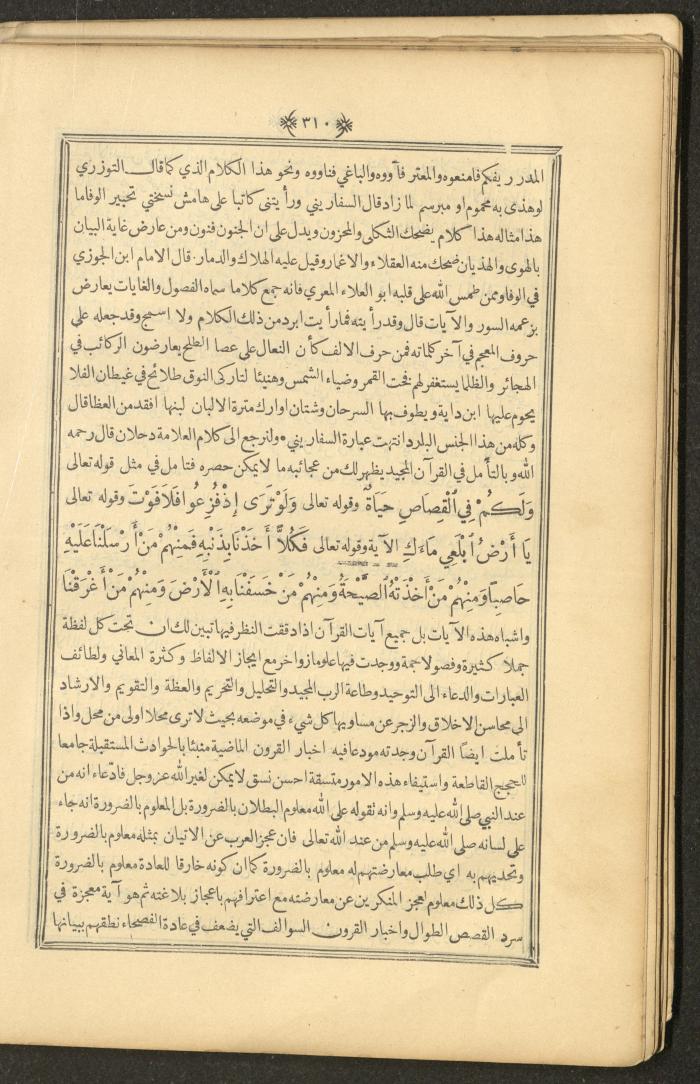 ٣١٠
المدرر يفكم فامنعوه والمعتر فآووه والباغي فناووه ونحو هذا الكلام الذي كما قال التوزري
لوهذى به محموم او مبرسم لما زاد قال السفاريني ورأيتنى كاتبا على هامش نسختي تحبير الوفا ما
هذا مثاله هذا كلام يضحك الثكلى والمحزون ويدل على ان الجنون فنون ومن عارض غاية البيان
بالهوى والهذيان ضحك منه العقلاء والاغمار وقيل عليه الهلاك والدمار. قال الامام ابن الجوزي
في الوفا وممن طمس الله على قلبه ابو العلاء المعري فانه جمع كلاما سماه الفصول والغايات يعارض
بزعمه السور والآيات قال وقد رأيته فما رأيت ابرد من ذلك الكلام ولا اسمج وقد جعله على
حروف المعجم في آخر كلماته فمن حرف الالف كأن النعال على عصا الطلح يعارضون الركائب في
الهجائر والظلما يستغفر لهم فخت القمر وضياء الشمس وهنيئا لتاركى النوق طلائح في غيطان الفلا
يحوم عليها ابن داية ويطوف بها السرحان وشتان اوارك مترة الالبان لبنها افقد من العظا قال
وكله من هذا الجنس البارد انتهت عبارة السفاريني • ولنرجع الى كلام العلامة دحلان قال رحمه
الله وبالتأمل في القرآن المجيد يظهر لك من عجائبه ما لا يمكن حصره فتامل في مثل قوله تعالى
وَلَكُمْ فِي الْقِصَاصِ حَيَاةٌ وقوله تعالى وَلَوْ تَرَى إِذْ فُزِعُوا فَلَا فَوْتَ وقوله تعالى
يَا أَرْضُ ٱبْلَعِي مَاءَكِ الآية وقوله تعالى فَكُلًّا أَخَذْنَا بِذَنْبِهِ فَمِنْهُمْ مَنْ أَرْسَلْنَا عَلَيْهِ
حَاصِبًا وَمِنْهُمْ مَنْ أَخَذَتْهُ الصَّيْحَةُ وَمِنْهُمْ مَنْ خَسَفْنَا بِهِ الْأَرْضَ وَمِنْهُمْ مَنْ أَغْرَقْنَا
واشباه هذه الآيات بل جميع آيات القرآن اذا دققت النظر فيها تبين لك ان تحت كل لفظة
جملا كثيرة وفصولا جمة ووجدت فيها علوما زواخر مع ايجاز الالفاظ وكثرة المعاني ولطائف
العبارات والدعاء الى التوحيد وطاعة الرب المجيد والتحليل والتحريم والعظة والتقويم والارشاد
الى محاسن الاخلاق والزجر عن مساويها كل شيء في موضعه بحيث لا ترى محلا اولى من محل واذا
تأملت ايضاً القرآن وجدته مودعا فيه اخبار القرون الماضية منبئا بالحوادث المستقبلة جامعا
للحجج القاطعة واستيفاء هذه الامور متسقة احسن نسق لا يمكن لغير الله عز وجل فادّعاء انه من
عند النبي صلى الله عليه وسلم وانه نقوله على الله معلوم البطلان بالضرورة بل المعلوم بالضرورة انه جاء
على لسانه صلى الله عليه وسلم من عند الله تعالى فان عجز العرب عن الاتيان بمثله معلوم بالضرورة
وتحديهم به اي طلب معارضتهم له معلوم بالضرورة كما ان كونه خارقا للعادة معلوم بالضرورة
كل ذلك معلوم لعجز المنكرين عن معارضته مع اعترافهم باعجاز بلاغته ثم هو آية معجزة في
سرد القصص الطوال واخبار القرون السوالف التي يضعف في عادة الفصحاء نطقهم ببيانها